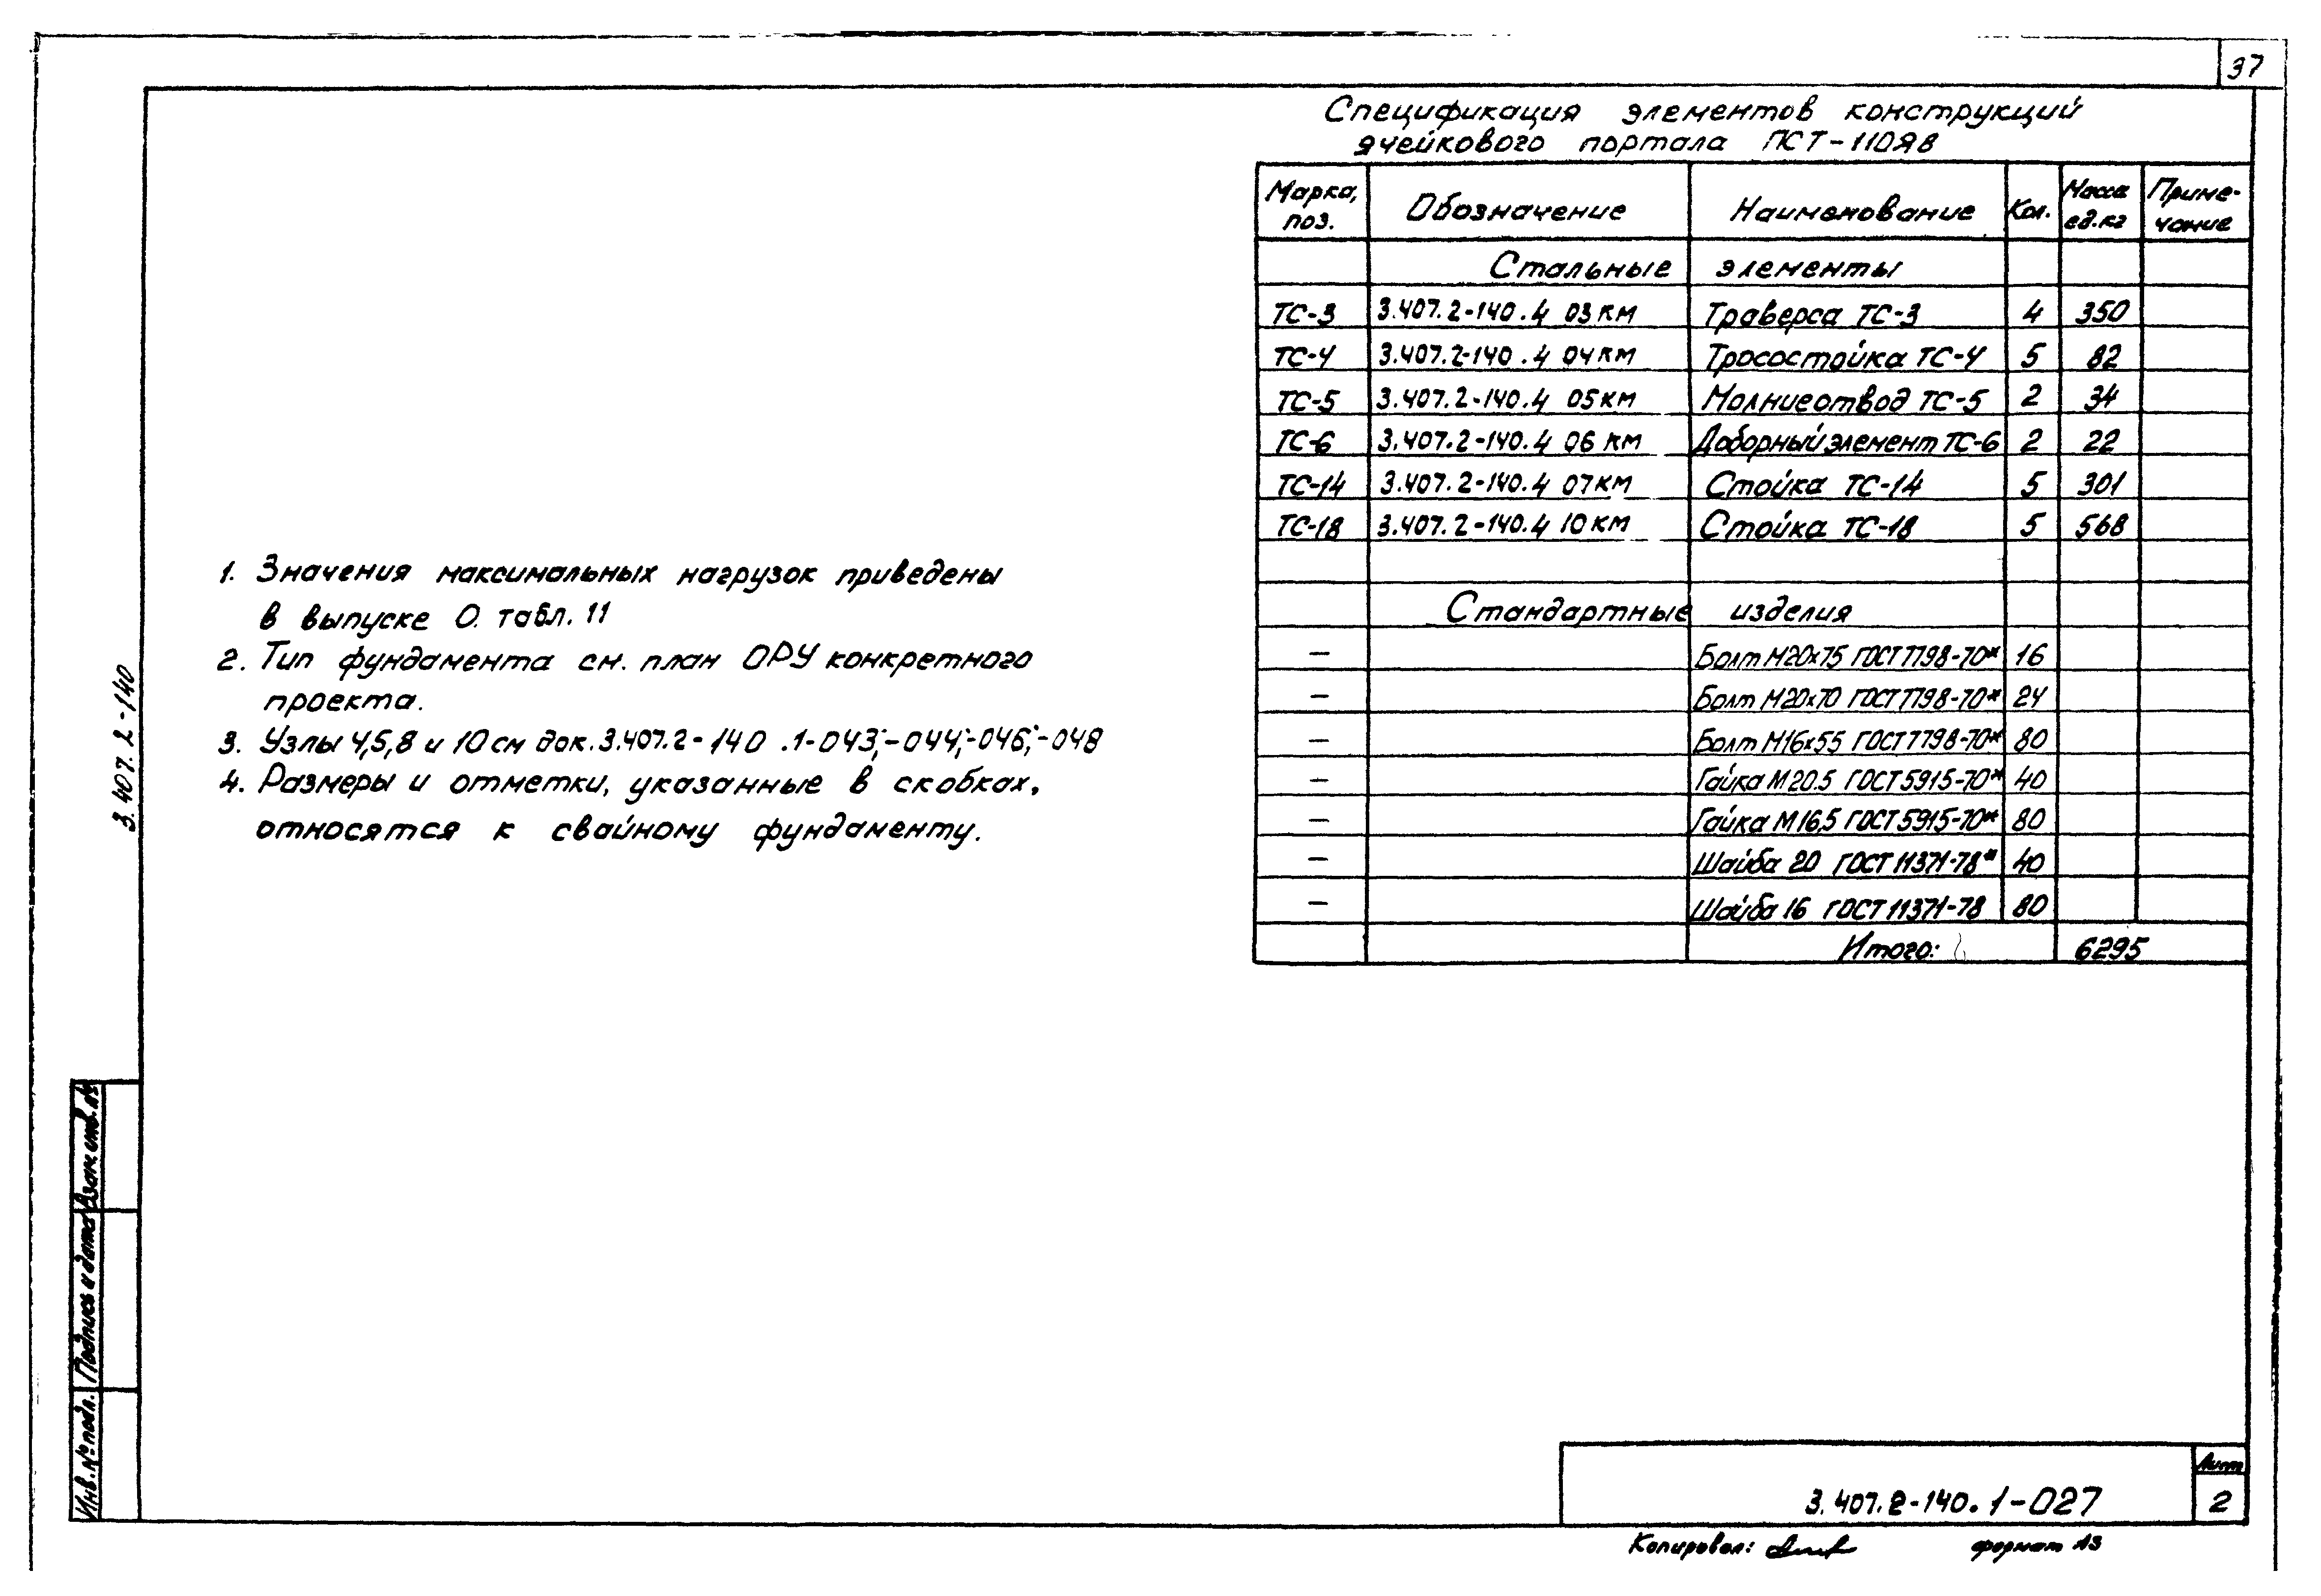 37
Спецификация элементов конструкций
ячейкового портала ПСТ-110Я8
Марка, поз. Обозначение Наименование Кол. Масса ед.кг Приме-чание
Стальные элементы
ТС-3 3.407.2-140.4 03КМ Траверса ТС-3 4 350
ТС-4 3.407.2-140.4 04КМ Тросостойка ТС-4 5 82
ТС-5 3.407.2-140.4 05КМ Молниеотвод ТС-5 2 34
ТС-6 3.407.2-140.4 06 КМ Доборный элемент ТС-6 2 22
ТС-14 3.407.2-140.4 07КМ Стойка ТС-14 5 301
ТС-18 3.407.2-140.4 10КМ Стойка ТС-18 5 568
Стандартные изделия
— Болт М20х75 ГОСТ 7798-70* 16
— Болт М20х70 ГОСТ 7798-70* 24
— Болт М16х55 ГОСТ 7798-70* 80
— Гайка М20.5 ГОСТ 5915-70* 40
— Гайка М16.5 ГОСТ 5915-70* 80
— Шайба 20 ГОСТ 11371-78* 40
— Шайба 16 ГОСТ 11371-78 80
Итого: 6295
1. Значения максимальных нагрузок приведены
в выпуске 0. табл. 11
2. Тип фундамента см. план ОРУ конкретного
проекта.
3. Узлы 4,5,8 и 10 см док. 3.407.2-140.1-043;-044;-046;-048
4. Размеры и отметки, указанные в скобках,
относятся к свайному фундаменту.
3.407.2-140
Взам. инв. №
Подпись и дата
Инв. № подл.
3.407.2-140.1-027
Лист
2
Копировал:
формат А3